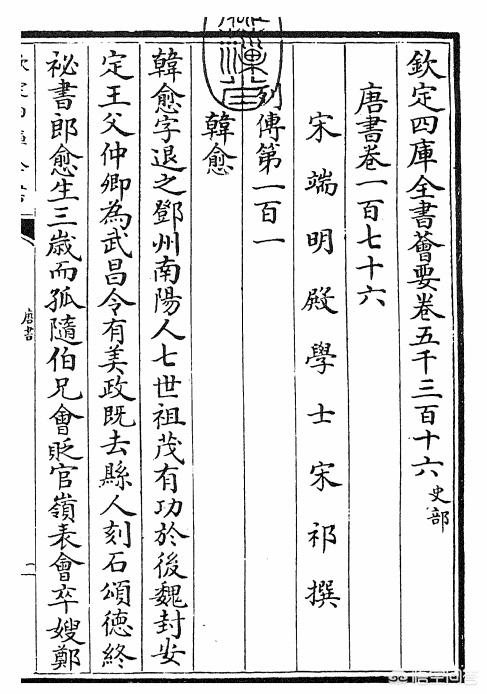 欽定四庫全書薈要卷五千三百十六 史部
唐書卷一百七十六
宋端明殿學士宋祁撰
列傳第一百一
韓愈
韓愈字退之鄧州南陽人七世祖茂有功於後魏封安
定王父仲卿為武昌令有美政既去縣人刻石頌德終
祕書郎愈生三歲而孤隨伯兄會貶官嶺表會卒嫂鄭
唐書